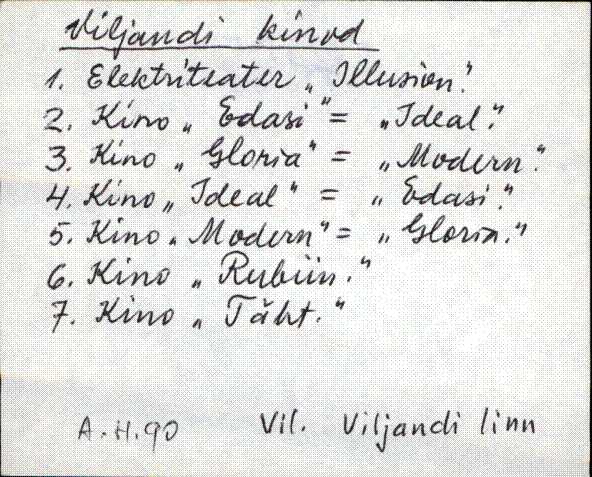 Viljandi kinod
1. Elektriteater „Illusion".
2. Kino „Edasi" = „Ideal".
3. Kino „Gloria" = „Modern".
4. Kino „Ideal" = „Edasi".
5. Kino „Modern" = „Gloria."
6. Kino „Rubiin."
7. Kino „Täht."
A.H.90 Vil. Viljandi linn